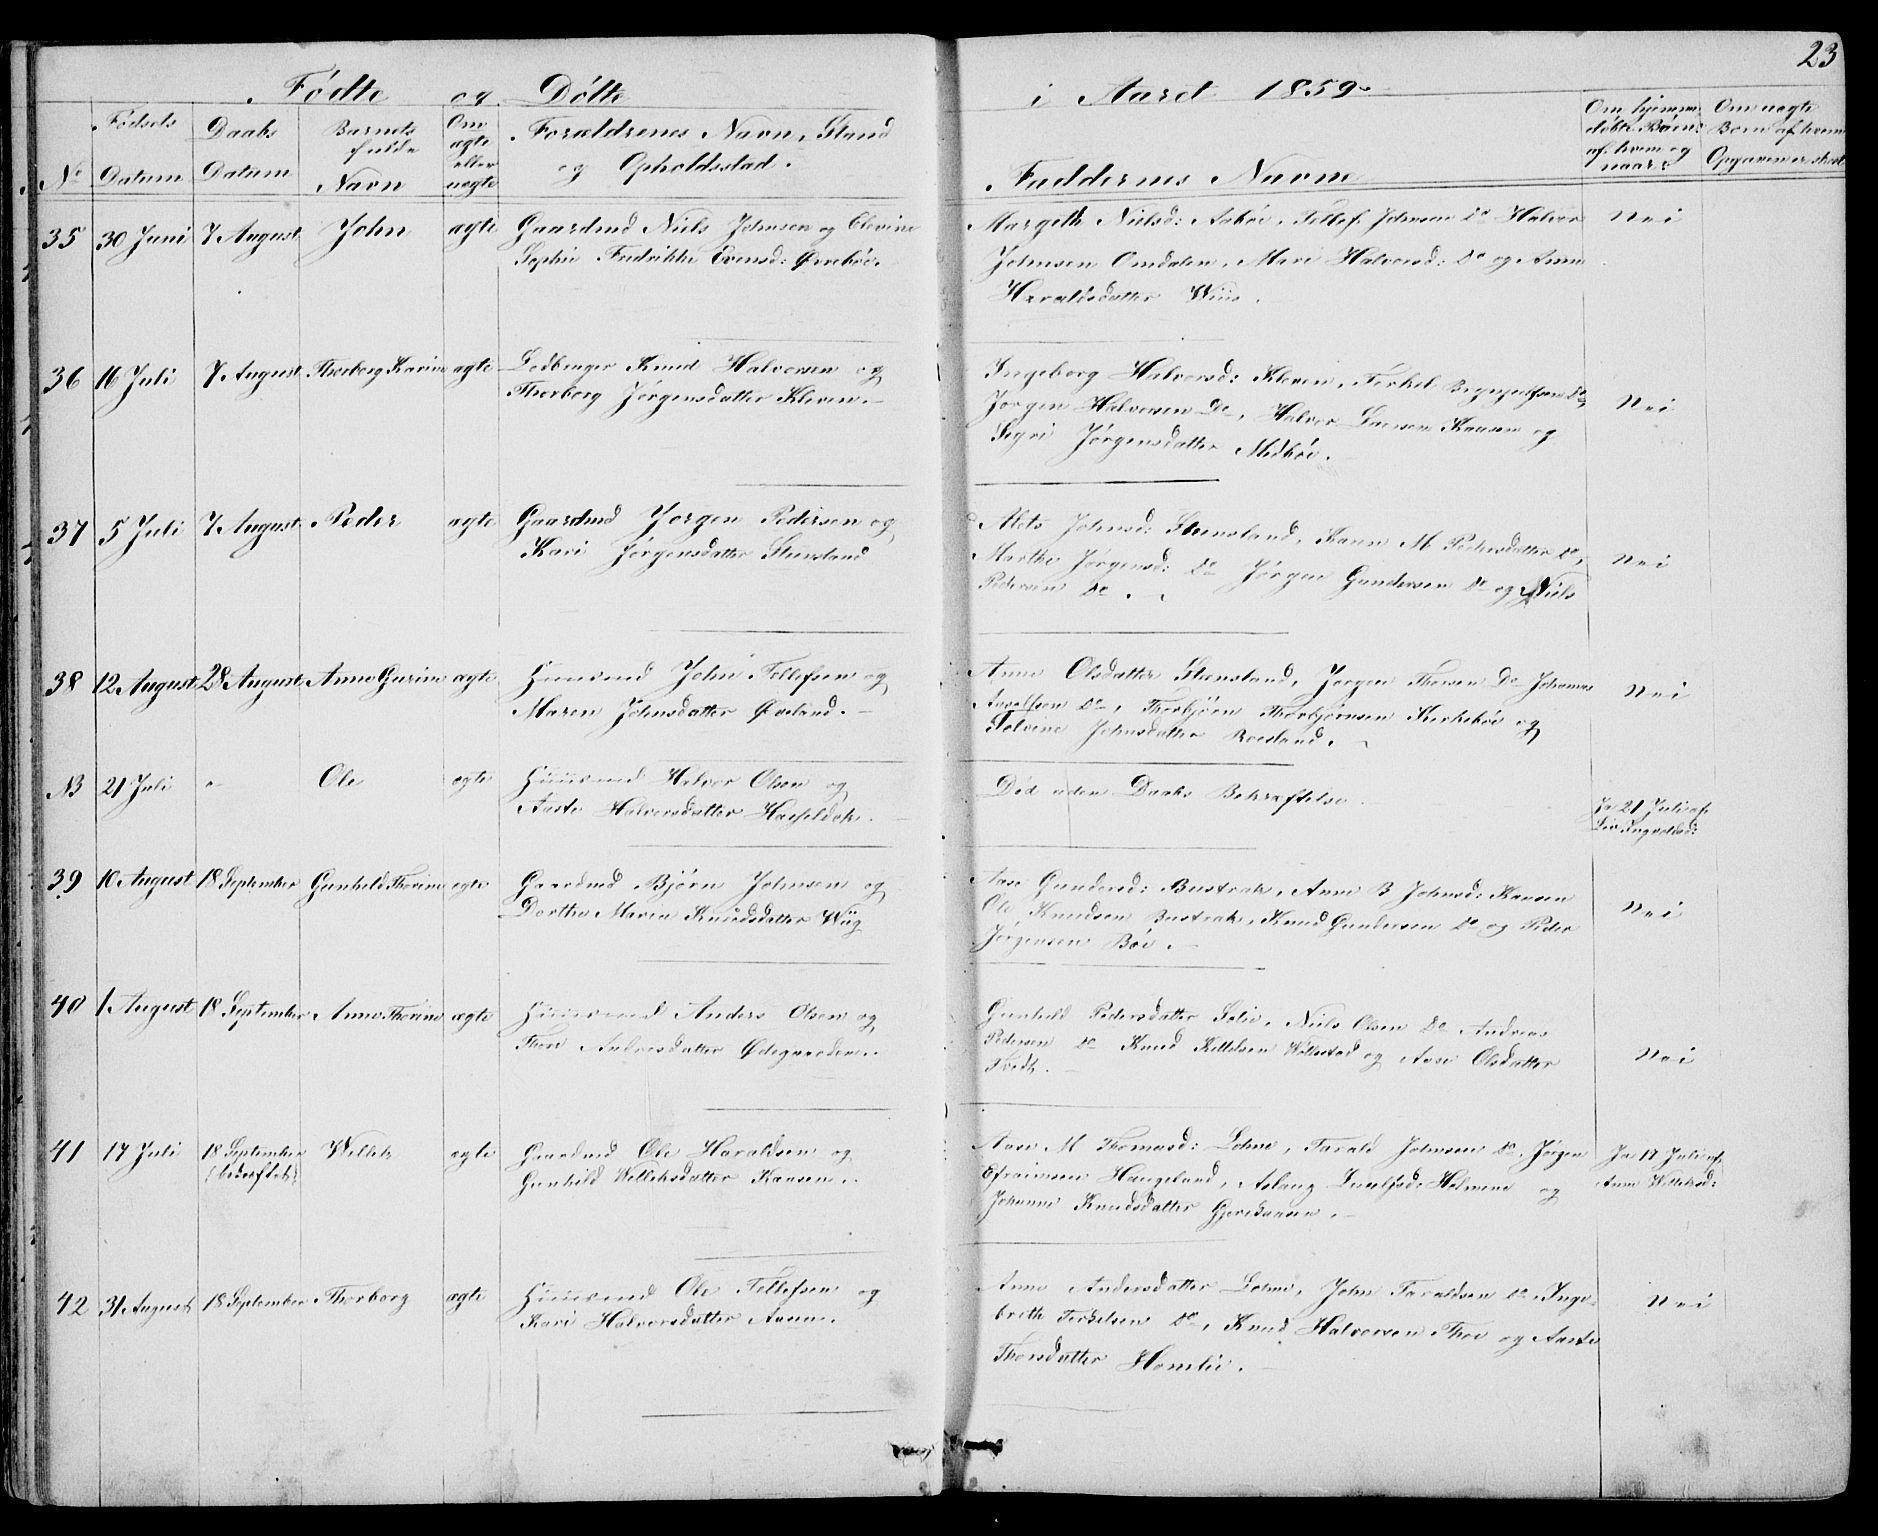 23
Fødte og Døbte i Aaret 1859
No
Fødsels Datum
Daabs Datum
Barnets fulde Navn
Om ægte eller uægte
Forældrenes Navn, Stand
og Opholdsstad.
Faddernes Navne
Om hjemme
døbte Børn:
af hvem og
naar?
Om uægte
Børn af hvem
Opgaven er skeet
35 30 Juni 7 August John ægte Gaardmd Niels Johnsen og
Sophie Fredrikke Evensd:
Margith Nielsd: Tellef Johnsen Do Halvor
Johnsen Omdalen, Mari Halvorsd: Do og Anne
Haraldsdatter Wiig.
Nei
36 16 Juli 7 August Thorborg Karine ægte Ledbruger Knud Halvorsen og
Thorborg Jørgensdatter Kleven.
Ingeborg Halvorsd: Kleven, Terkel Do,
Jørgen Halvorsen Do, Halvor Larsen Kaasen og
Sigri Jørgensdatter Midbøe.
Nei
37 5 Juli 7 August Peder ægte Gaardmd Jørgen Pedersen og
Kari Jørgensdatter Stensland
Johnsd: Stensland, Karen M Pedersdatter Do,
Marthe Jørgensd: Do Jørgen Gundersen Do og Niels
Pedersen Do.
Nei
38 12 August 28 August Anne Gurine ægte Huusmd John Tellefsen og
Maren Johnsdatter Øvland.
Anne Olsdatter Stensland, Jørgen Thorsen Do Johannes
Do, Thorbjørn Thorbjørnsen Kirkebøe og
Tolvine Johnsdatter
Nei
NB 21 Juli " Ole ægte Huusmand Halvor Olsen og
Aaste Halvorsdatter
Død uden Daabs Bekræftelse
Ja 21 Juli af
Liv Ingvaldsd:
39 10 August 18 September Gunhild Thorine ægte Gaardmd Bjørn Johnsen og
Dorthe Marie Knudsdatter Wiig
Aase Gundersd: Bustrak, Anne B Johnsd: Kaasen
Ole Knudsen Bustrak, Knud Gundersen Do og Peder
Jørgensen Bøe.
Nei
40 1 August 18 September Anne Thorine ægte Huusmand Anders Olsen og
Thore Andresdatter Ødegaarden.
Gunhild Pedersdatter Solie, Niels Olsen Do Andreas
Pedersen Do Knud Kittelsen Wellestad og Aase Olsdatter
Tvedt.
Nei
41 17 Juli 18 September
(bekræftet)
Wetlek ægte Gaardmd Ole Haraldsen og
Gunhild Wetleksdatter Kaasen.
Aase M Thomasd: Lohne, Tarald Johnsen Do, Jørgen
Efraimsen Haugeland, Aslaug Holmene og
Johanne Knudsdatter
Ja 17 Juli af
Anne Wetleksd:
42 31 August 18 September Thorborg ægte Huusmand Ole Tellefsen og
Kari Halvorsdatter Aasen.
Anne Andersdatter Lohne, John Taraldsen Do, Inge-
breth Terkelsen Do, Knud Halvorsen Thoe og Aaste
Thorsdatter Homlie.
Nei